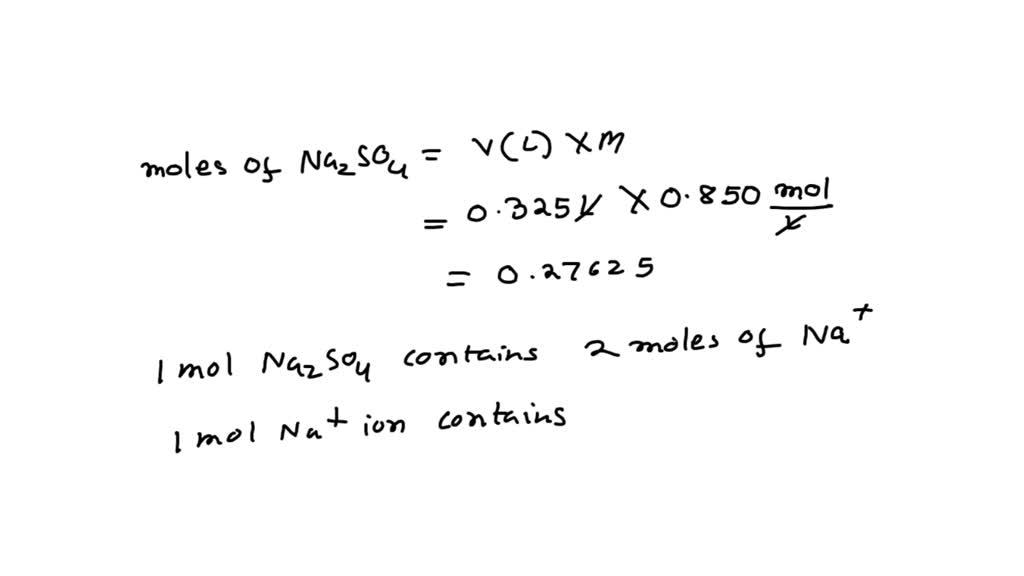 moles of Na₂SO₄ = V(L) × M
= 0.325 L × 0.850 mol/L
= 0.27625
1 mol Na₂SO₄ contains 2 moles of Na⁺
1 mol Na⁺ ion contains